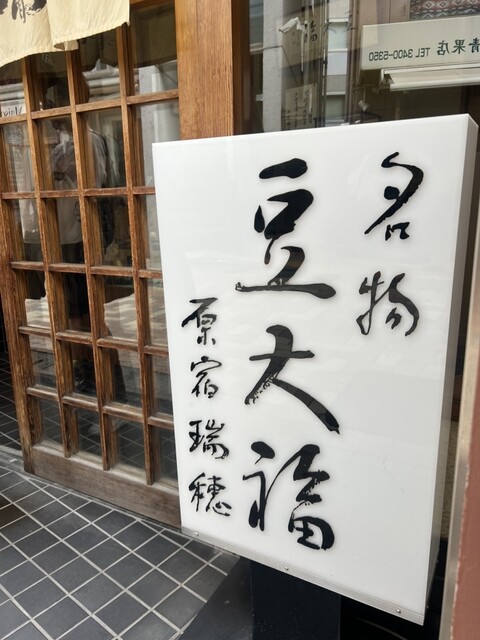 名物
豆大福
原宿瑞穂
青果店 TEL 3400-5350